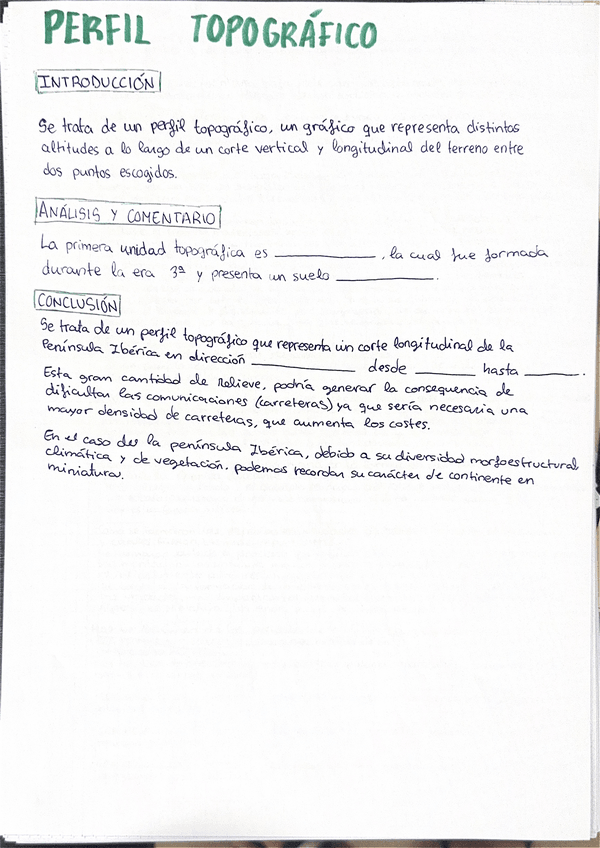 PERFIL TOPOGRÁFICO
INTRODUCCIÓN
Se trata de un perfil topográfico, un gráfico que representa distintas
altitudes a lo largo de un corte vertical y longitudinal del terreno entre
dos puntos escogidos.
ANÁLISIS Y COMENTARIO
La primera unidad topográfica es ___________, la cual fue formada
durante la era 3ª y presenta un suelo ___________.
CONCLUSIÓN
Se trata de un perfil topográfico que representa un corte longitudinal de la
Península Ibérica en dirección ___________ desde _______ hasta _______.
Esta gran cantidad de relieve, podría generar la consequencia de
dificultar las comunicaciones (carreteras) ya que sería necesaria una
mayor densidad de carreteras, que aumenta los costes.
En el caso de la península Ibérica, debido a su diversidad morfoestructural
climática y de vegetación. podemos recordar su carácter de continente en
miniatura.